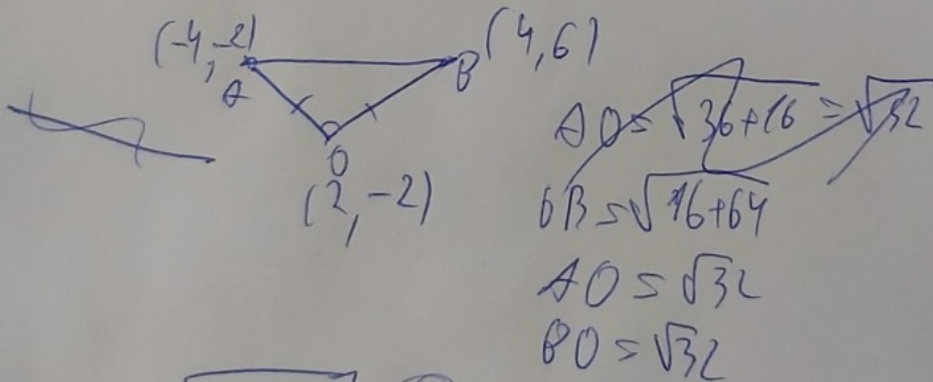 (-4,-2)
A
B (4,6)
O
(2,-2)
AO = √36+16 = √32
OB = √16+64
AO = √32
BO = √32